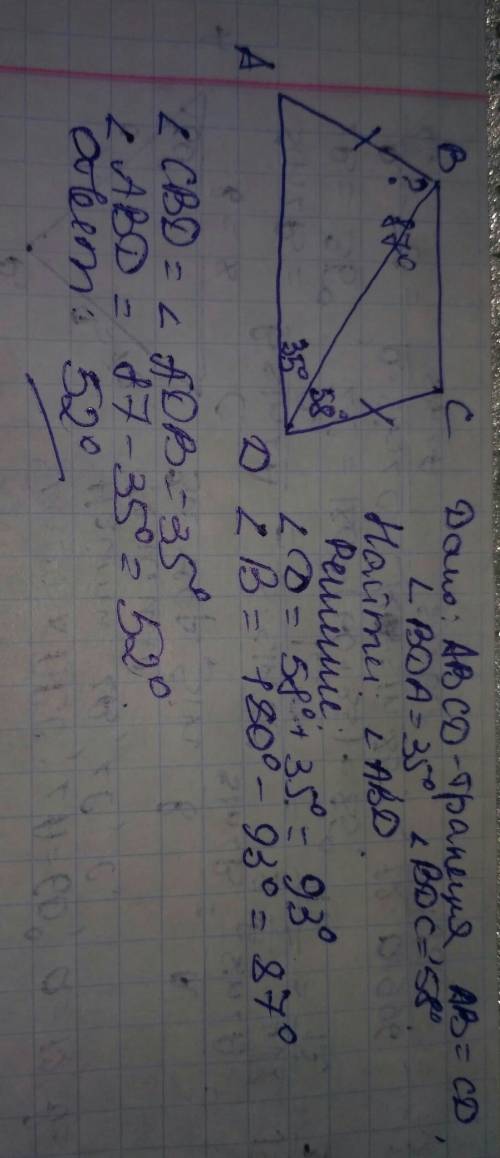 Дано: ABCD - трапеция AB = CD,
∠BDA = 35° ∠BDC = 58°
Найти: ∠ABD
Решение:
∠D = 58° + 35° = 93°
∠B = 180° - 93° = 87°
∠CBD = ∠ADB = 35°
∠ABD = 87 - 35° = 52°
Ответ: 52°
A
B
C
D
?
87°
35°
58°